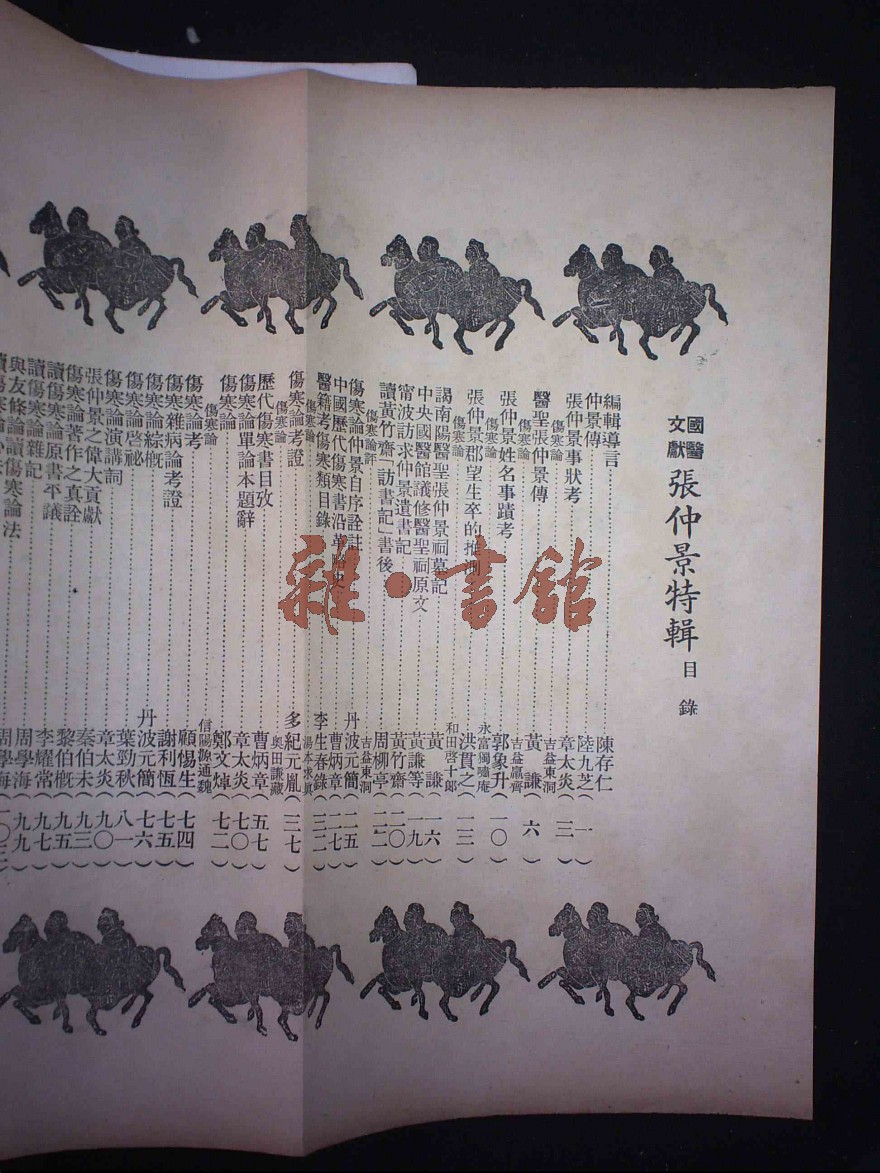 國醫文獻 張仲景特輯 目錄
編輯導言 陳存仁
仲景傳 陸九芝(一)
張仲景事狀考 章太炎(三)
傷寒論 吉益東洞
醫聖張仲景傳 黃謙(六)
傷寒論 吉益羸齊
張仲景姓名事蹟考 郭象升(一〇)
傷寒論 永富獨嘯庵
張仲景郡望生卒的推測 洪貫之(一三)
傷寒論 和田啓十郎
謁南陽醫聖張仲景祠墓記 黃謙(一六)
中央國醫館議修醫聖祠原文 黃謙等(一九)
甯波訪求仲景遺書記 黃竹齋(二〇)
讀黃竹齋「訪書記」書後 周柳亭(二二)
傷寒論評 吉益東洞
傷寒論仲景自序詮註 丹波元簡(二五)
中國歷代傷寒書沿革略史 曹炳章(二七)
醫籍考傷寒類目錄 李生春錄(三二)
傷寒論 湯本求真
傷寒論考證 多紀元胤(三七)
傷寒論 奥田謙藏
歷代傷寒書目攷 曹炳章(五七)
傷寒論單論本題辭 章太炎(七〇)
傷寒論 鄭文焯(七二)
傷寒論 信陽源通魏
傷寒論考 顧惕生(七四)
傷寒雜病論考證 謝利恆(七五)
傷寒論綜概 丹波元簡(七六)
傷寒論啓祕 葉勁秋(八一)
傷寒論演講詞 章太炎(九〇)
張仲景之偉大貢獻 秦伯未(九三)
傷寒論著作之真詮 黎伯概(九五)
讀傷寒論原書平議 李耀常(九七)
讀傷寒論雜記 周學海(九九)
與友條論讀傷寒論法 周學海(一〇三
雜·書館